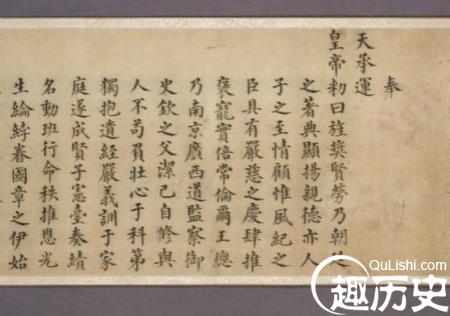 奉
天承運
皇帝勑曰旌獎賢勞乃朝廷
之著典顯揚親德亦人
子之至情顧惟風紀之
臣具有嚴慈之慶肆推
褒寵實倍常倫爾王總
乃南京廣西道監察御
史欽之父潔己自修與
人不苟負壯心于科第
獨抱遺經嚴義訓于家
庭遂成賢子憲臺奏績
名動班行命秩推恩光
生綸綍眷國章之伊始
QuLishi.com
趣历史